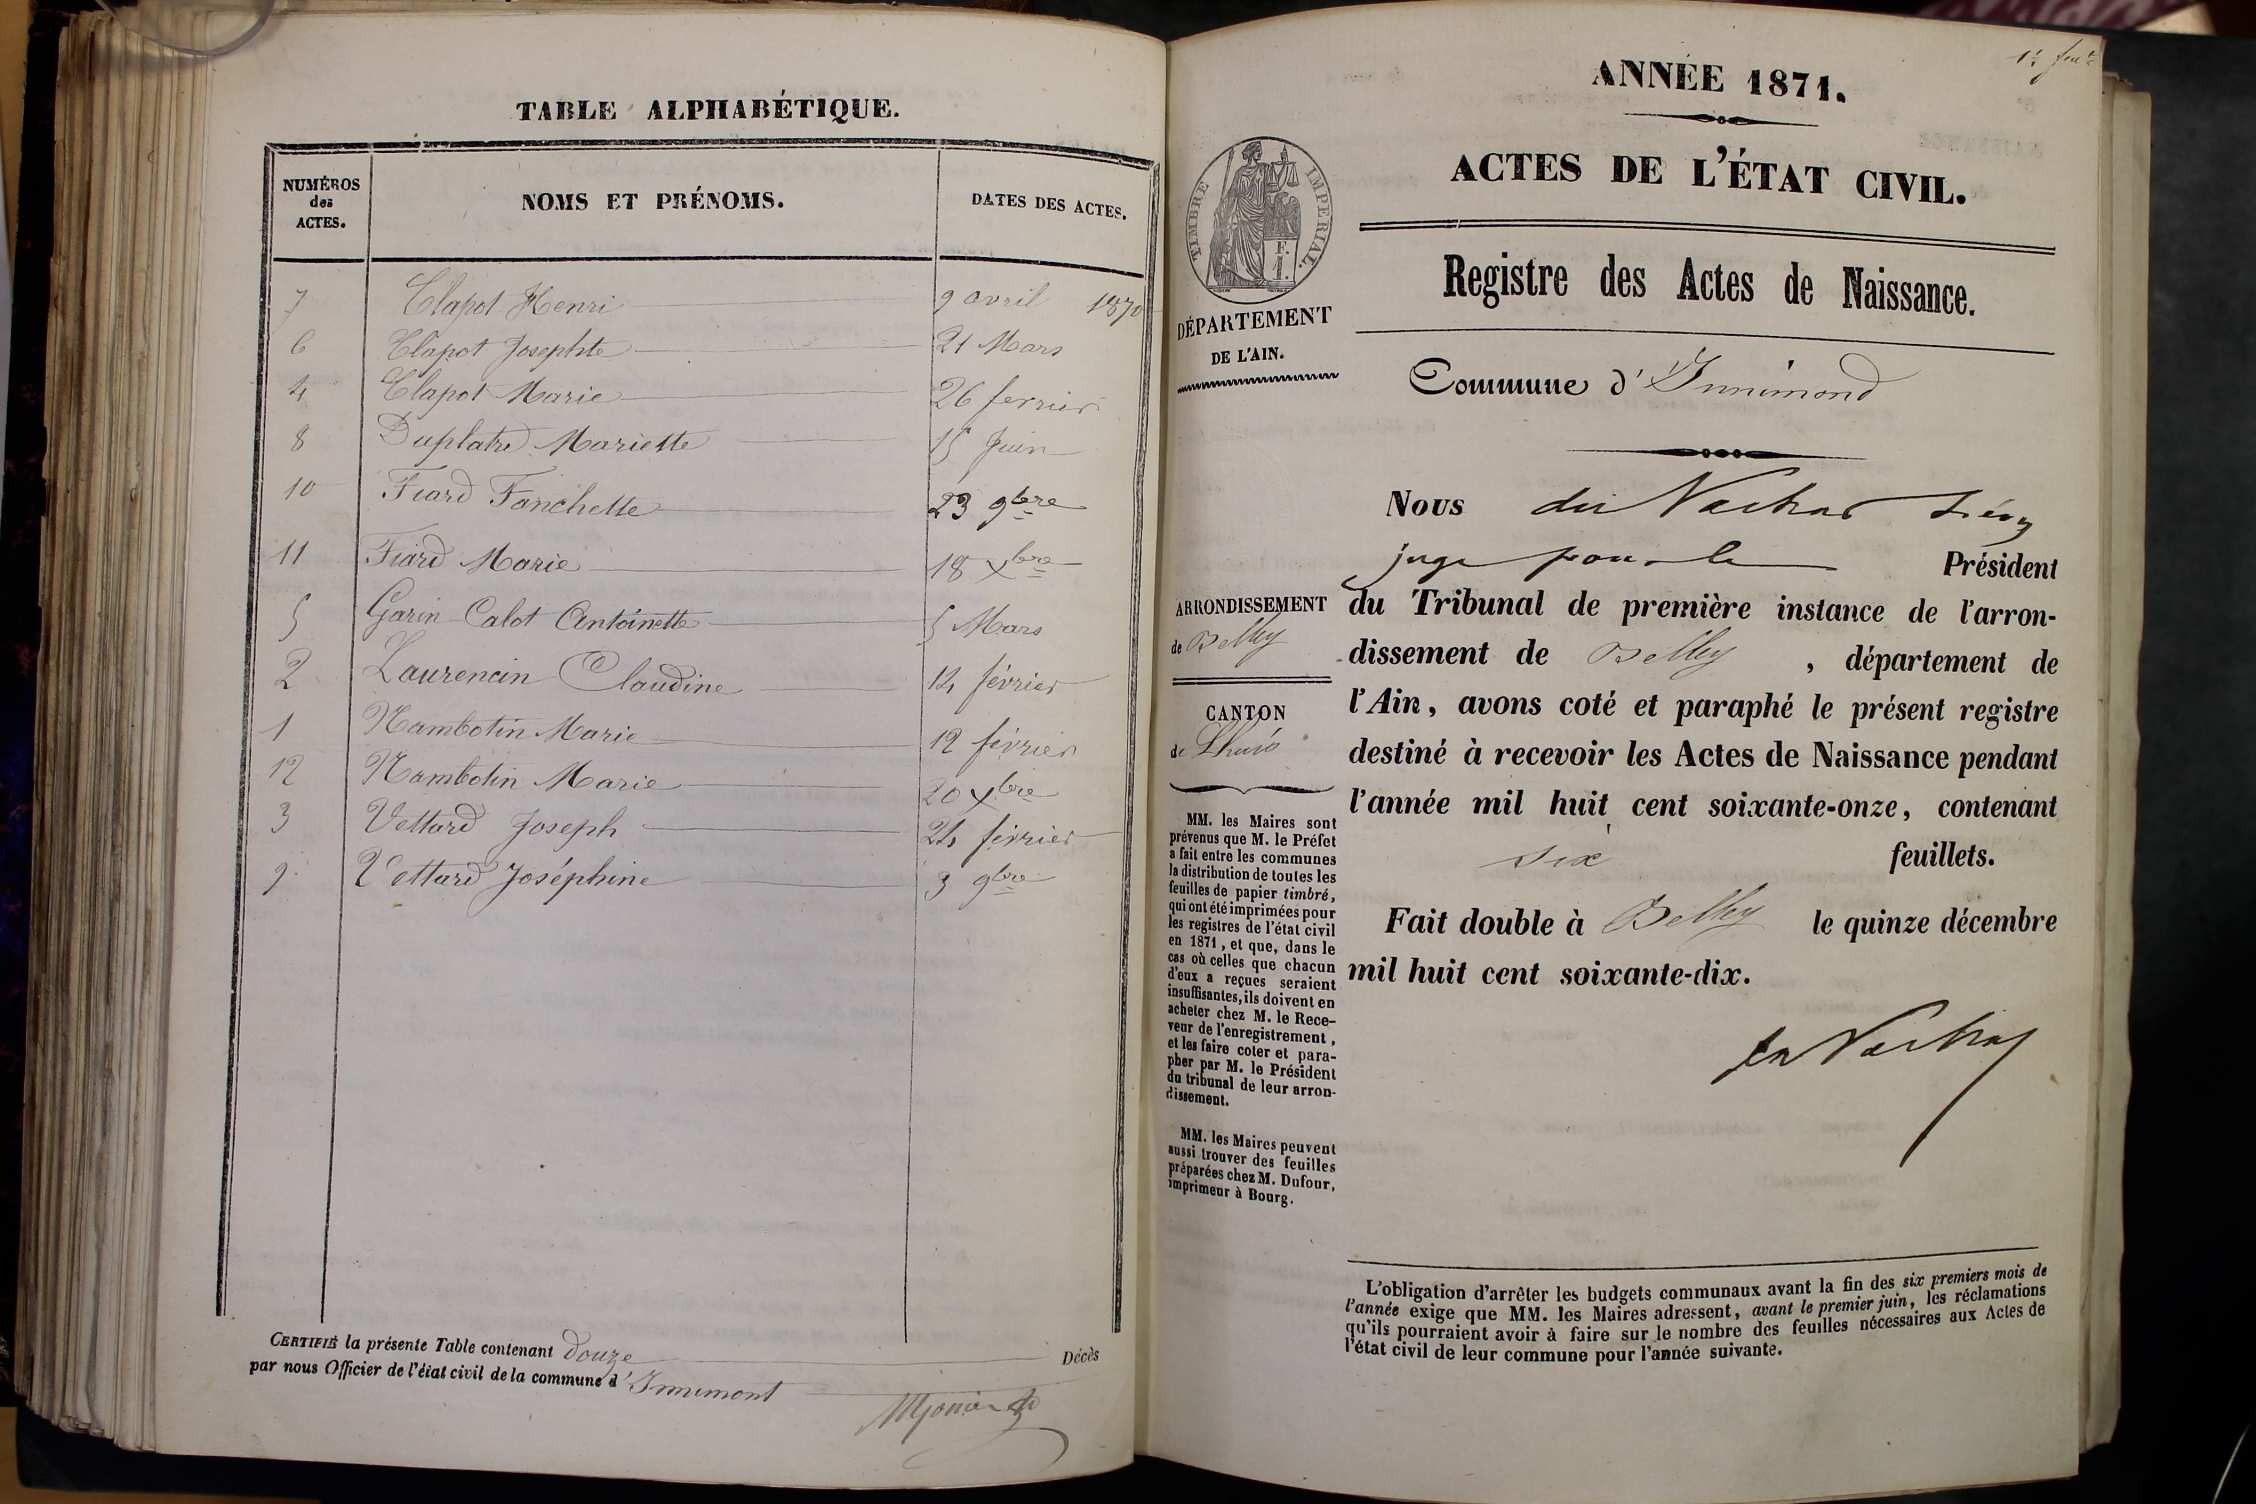 TABLE ALPHABÉTIQUE.
NUMÉROS des ACTES. NOMS ET PRÉNOMS. DATES DES ACTES.
7 Clapot Henri 9 avril 1870
6 Clapot Josephte 21 Mars
4 Clapot Marie 26 fevrier
8 Duplatre Mariette 15 Juin
10 Fiard Fanchette 23 9bre
11 Fiard Marie 18 Xbre
5 Garin-Calot Antoinette 5 Mars
2 Laurencin Claudine 14 février
1 Nambotin Marie 12 février
12 Nambotin Marie 20 Xbre
3 Vettard Joseph 24 février
9 Vettard Joséphine 3 9bre
CERTIFIÉ la présente Table contenant douze Décès
par nous Officier de l'état civil de la commune d'Innimont
1er feuil
ANNÉE 1871.
ACTES DE L'ÉTAT CIVIL.
TIMBRE IMPÉRIAL.
F.
1.
DÉPARTEMENT
DE L'AIN.
Registre des Actes de Naissance.
Commune d'Innimond
Nous du Nachat
juge pour le Président
du Tribunal de première instance de l'arron-
dissement de Belley, département de
l'Ain, avons coté et paraphé le présent registre
destiné à recevoir les Actes de Naissance pendant
l'année mil huit cent soixante-onze, contenant
six feuillets.
Fait double à Belley le quinze décembre
mil huit cent soixante-dix.
du Nachat
ARRONDISSEMENT
de Belley
CANTON
de Lhuis
MM. les Maires sont
prévenus que M. le Préfet
a fait entre les communes
la distribution de toutes les
feuilles de papier timbré,
qui ont été imprimées pour
les registres de l'état civil
en 1871, et que, dans le
cas où celles que chacun
d'eux a reçues seraient
insuffisantes, ils doivent en
acheter chez M. le Rece-
veur de l'enregistrement,
et les faire coter et para-
pher par M. le Président
du tribunal de leur arron-
dissement.
MM. les Maires peuvent
aussi trouver des feuilles
préparées chez M. Dufour,
imprimeur à Bourg.
L'obligation d'arrêter les budgets communaux avant la fin des six premiers mois de
l'année exige que MM. les Maires adressent, avant le premier juin, les réclamations
qu'ils pourraient avoir à faire sur le nombre des feuilles nécessaires aux Actes de
l'état civil de leur commune pour l'année suivante.